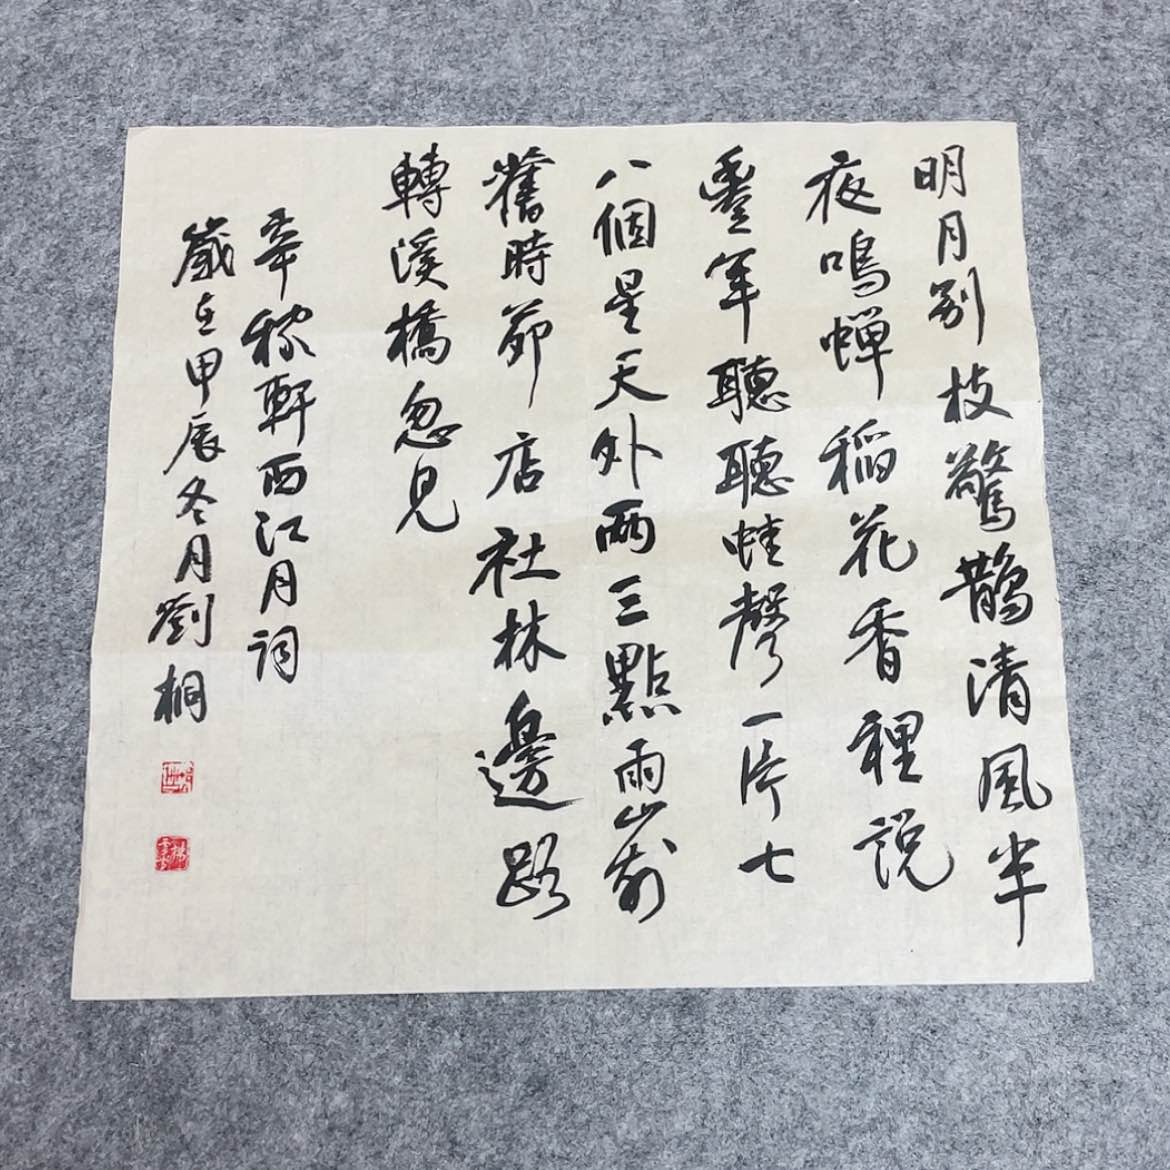 明月别枝驚鵲清風半
夜鳴蝉稻花香裡説
豊年聽聽蛙聲一片七
八個星天外兩三點雨山前
舊時茆店社林邊路
轉溪橋忽見
辛稼軒西江月词
歲在甲辰冬月劉桐